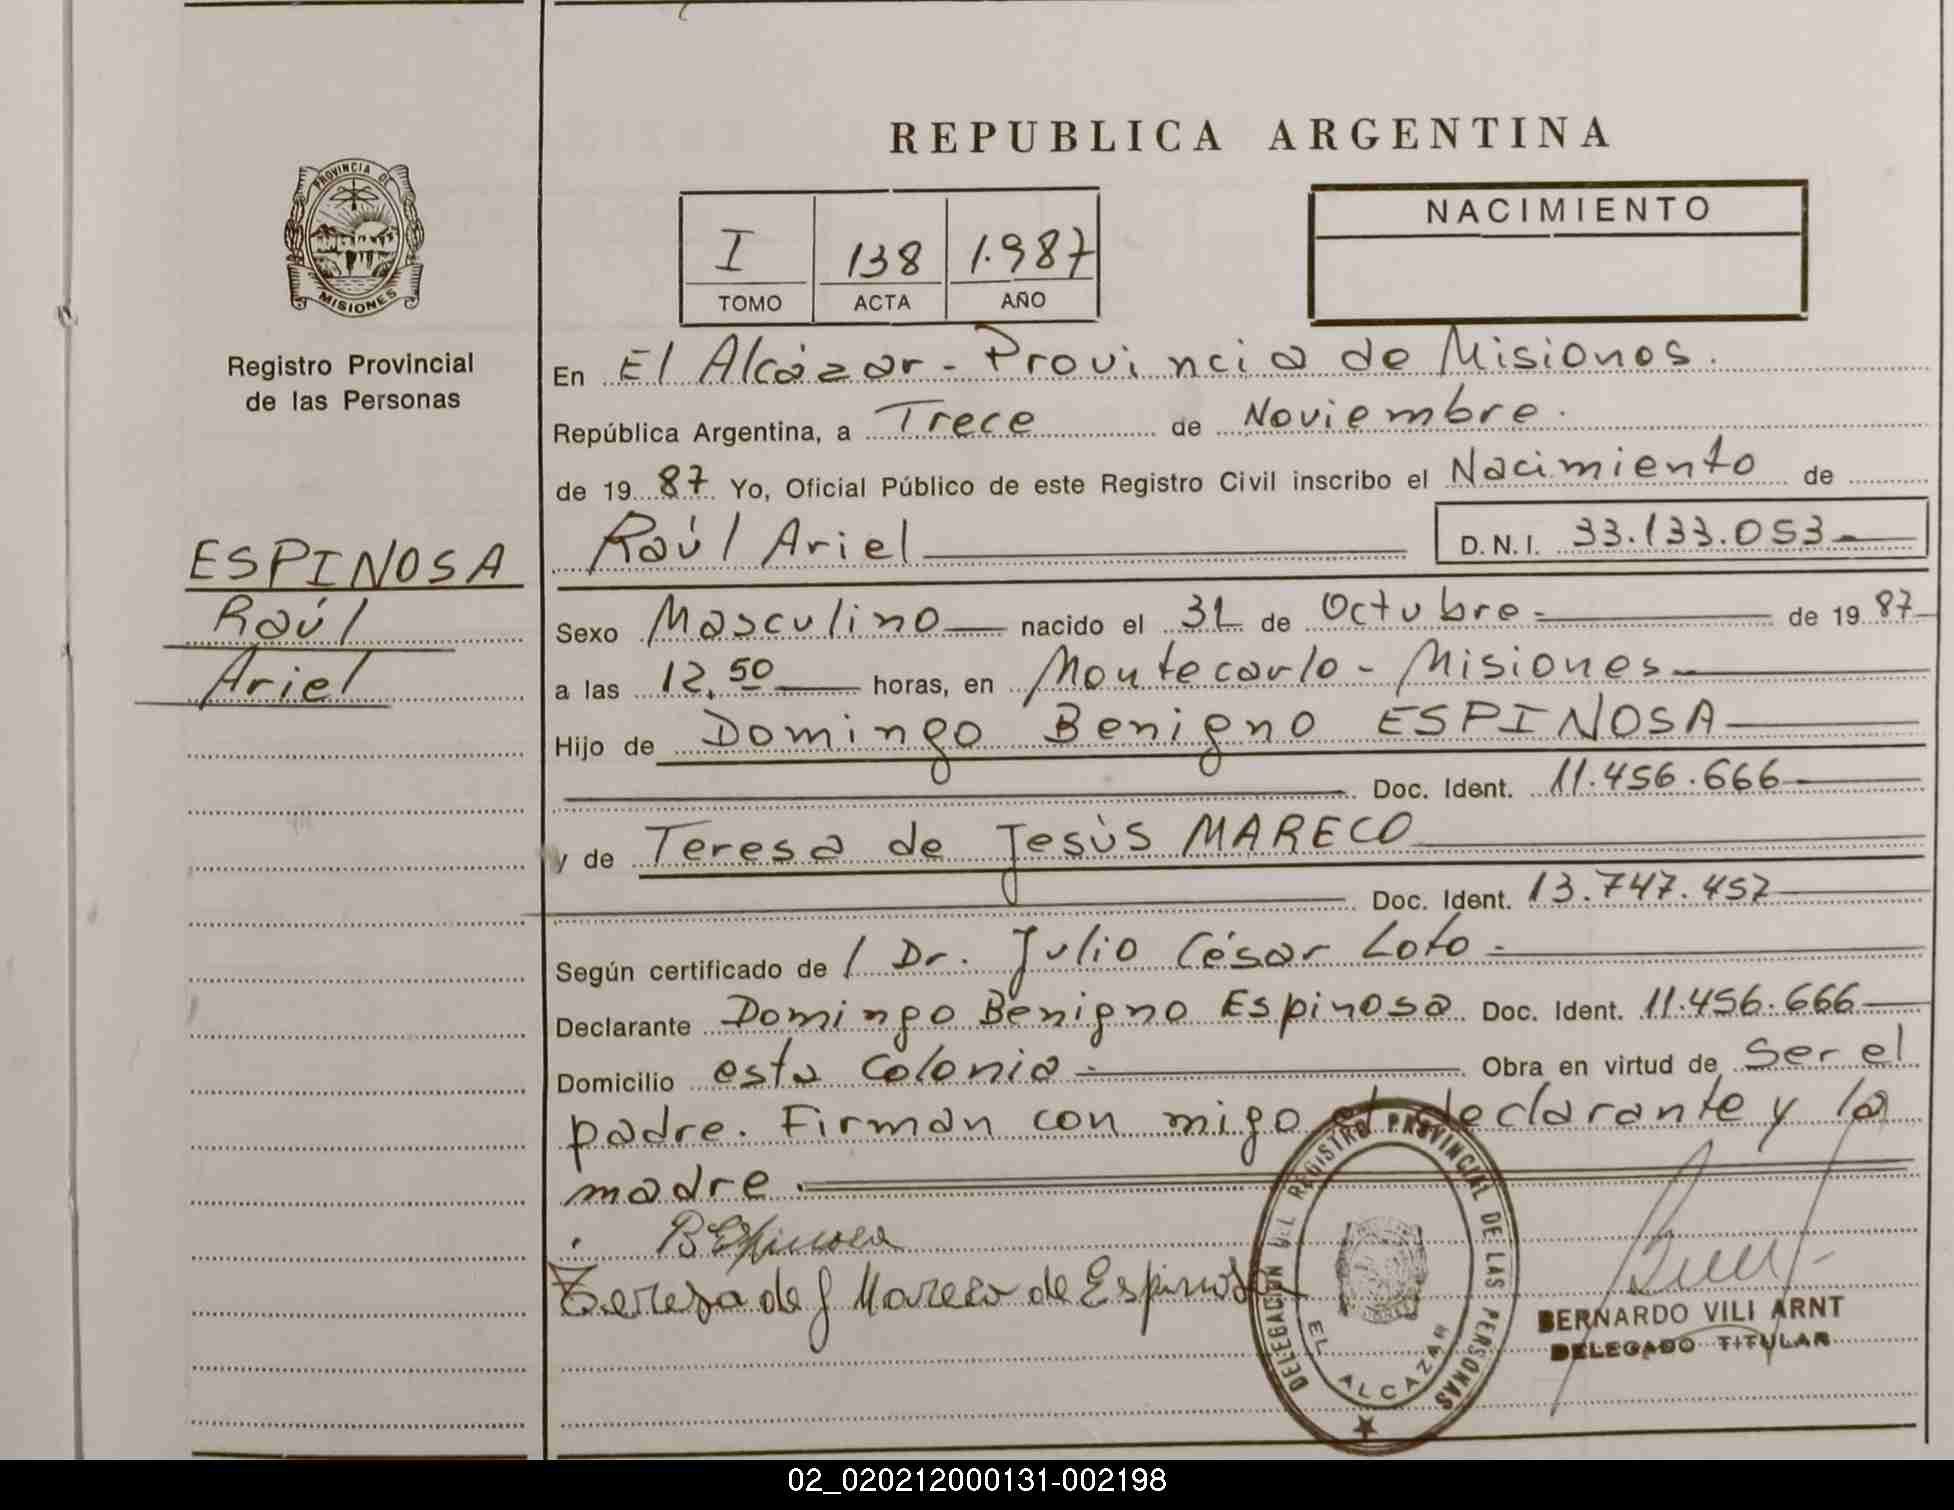 REPUBLICA ARGENTINA
PROVINCIA DE
MISIONES
Registro Provincial
de las Personas
ESPINOSA
Raúl
Ariel
I 138 1.987
TOMO ACTA AÑO
NACIMIENTO
En El Alcázar - Provincia de Misiones.
República Argentina, a Trece de Noviembre.
de 19 87 Yo, Oficial Público de este Registro Civil inscribo el Nacimiento de
Raúl Ariel D.N.I. 33.133.053
Sexo Masculino nacido el 31 de Octubre de 19 87
a las 12,50 horas, en Montecarlo - Misiones
Hijo de Domingo Benigno ESPINOSA
Doc. Ident. 11.456.666
y de Teresa de Jesùs MARECO
Doc. Ident. 13.747.457
Según certificado de / Dr. Julio César Loto
Declarante Domingo Benigno Espinosa Doc. Ident. 11.456.666
Domicilio esta Colonia Obra en virtud de ser el
padre. Firman con migo el declarante y la
madre.
B Espinosa
Tereza de J Mareco de Espinosa
DELEGACION DEL REGISTRO PROVINCIAL DE LAS PERSONAS
EL ALCAZAR
BERNARDO VILI ARNT
DELEGADO TITULAR
02_020212000131-002198